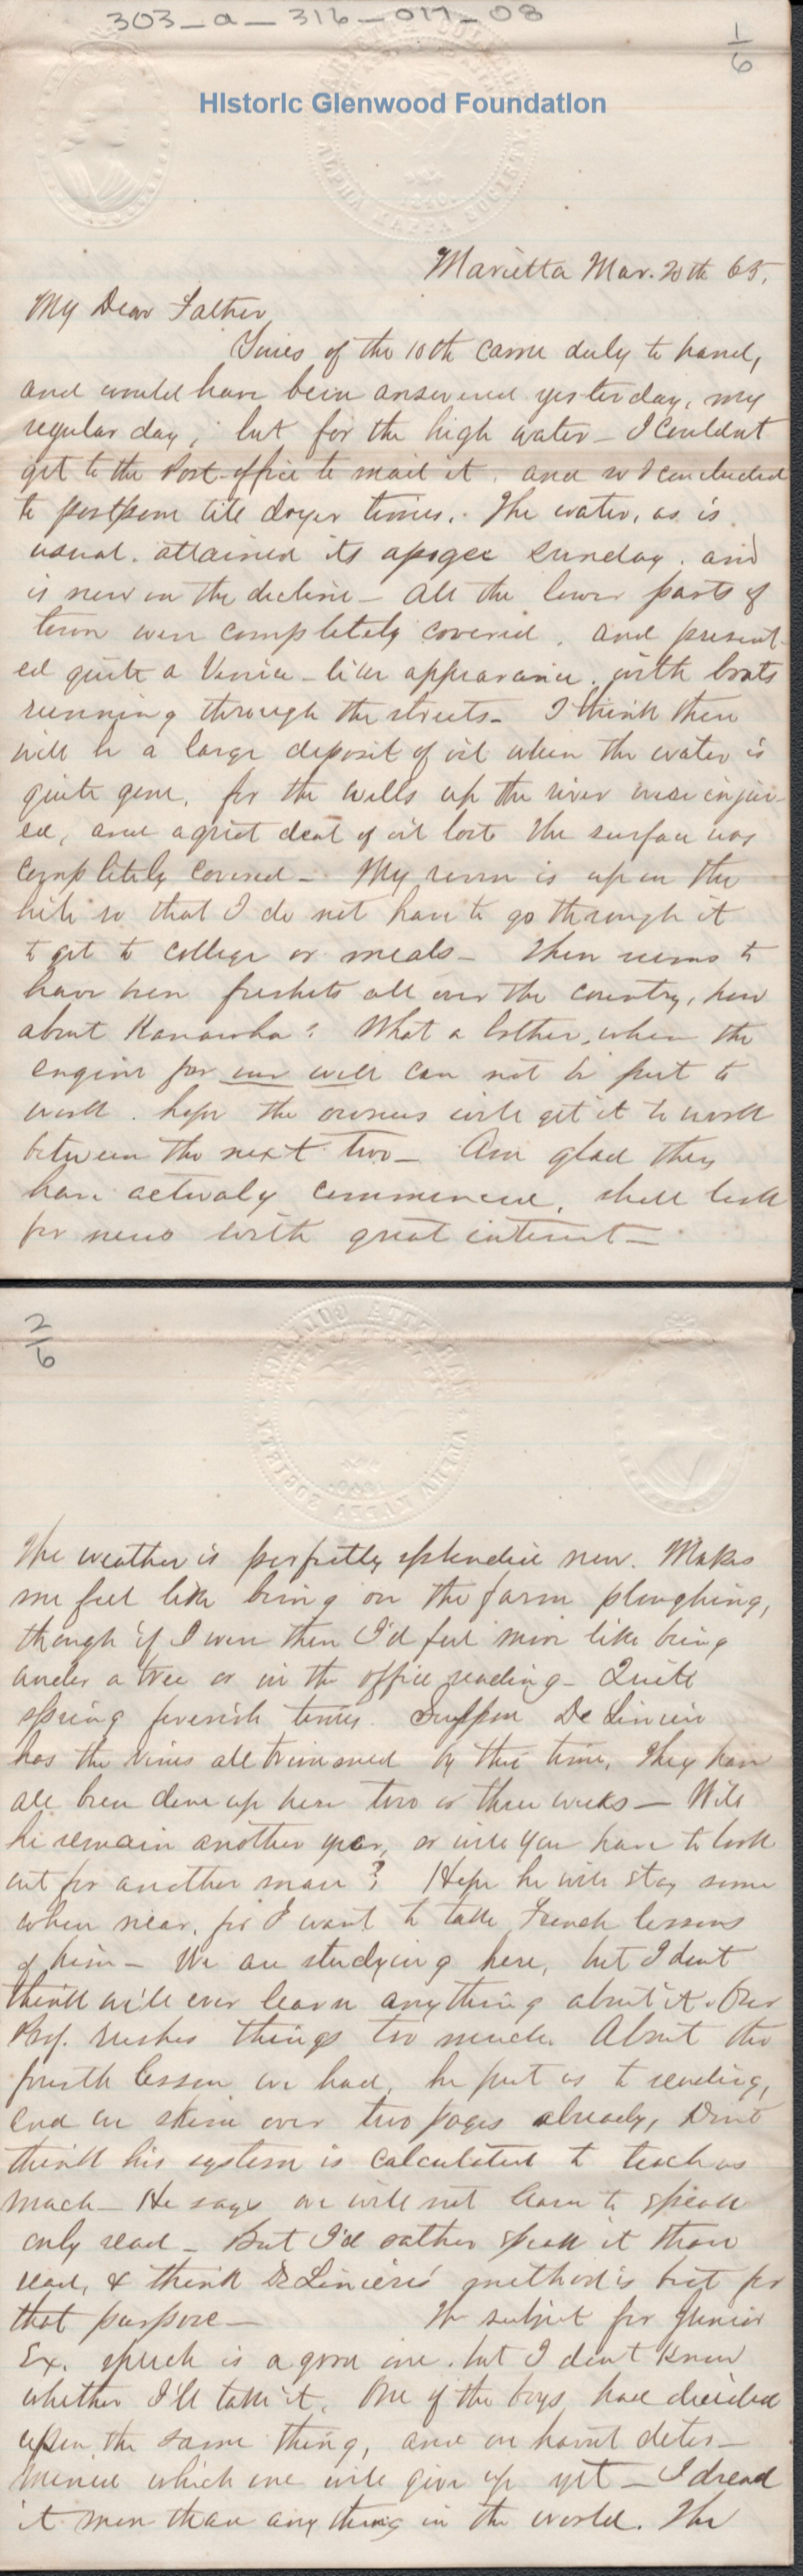 303_a_316_017_03
1/6
HIstoric Glenwood FoundatIon
ALPHA KAPPA SOCIETY
Marietta Mar. 20th 65.
My Dear Father
Yours of the 10th came duly to hand,
and would have been answered yesterday, my
regular day, but for the high water – I couldnt
get to the Post-office to mail it, and so I concluded
to postpone till dryer times. The water, as is
usual, attained its apogee Sunday, and
is now on the decline – All the lower parts of
town were completely covered, and present-
ed quite a Venice-like appearance, with boats
running through the streets – I think there
will be a large deposit of oil when the water is
quite gone, for the wells up the river were injur-
ed, and a great deal of oil lost The surface was
completely covered – My room is up on the
hill so that I do not have to go through it
to get to college or meals – There seems to
have been freshets all over the country, how
about Kanawha? What a bother, when the
engine for our well can not be put to
work. hope the owners will get it to work
between the next two – Am glad they
have actualy commenced, shall look
for news with great interest –
2/6
The weather is perfectly splendid now. Makes
me feel like being on the farm ploughing,
though if I were there I'd feel more like being
under a tree or in the office reading – Quite
spring feverish times. Suppose De Liniere
has the vines all trimmed by this time, They have
all been done up here two or three weeks – Will
he remain another year, or will you have to look
out for another man? Hope he will stay some
where near, for I want to take French lessons
of him – We are studying here, but I dont
think we'll ever learn any thing about it. Our
Prof. rushes things too much. About the
fourth lesson we had, he put us to reading,
and we skim over two pages already, Dont
think his system is calculated to teach us
much – He says we will not learn to speak
only read – But I'd rather speak it than
read, & think De Liniere's method is best for
that purpose – The subject for Junior
Ex. speech is a good one, but I don't know
whether I'll take it. One of the boys have decided
upon the same thing, and we havnt deter-
mined which one will give up yet – I dread
it more than any thing in the world. The